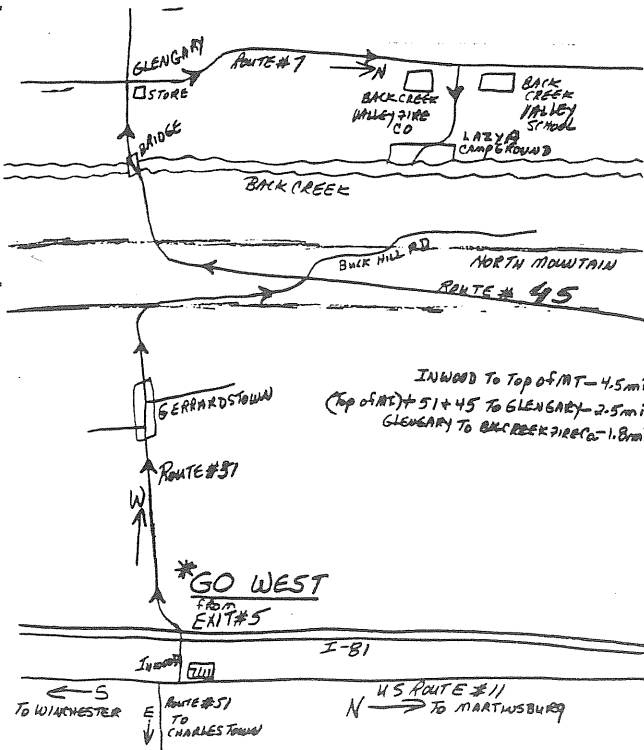 GLENGARY
ROUTE #7
N
STORE
BACKCREEK
VALLEY FIRE
CO
BACK
CREEK
VALLEY
SCHOOL
LAZY A
CAMPGROUND
BRIDGE
BACK CREEK
BUCK HILL RD
NORTH MOUNTAIN
ROUTE # 45
INWOOD TO Top of MT - 4.5mi
(Top of Mt) + 51 + 45 TO GLENGARY - 2.5mi
GLENGARY TO BKCREEK FIRE Co - 1.8mi
GERRARDSTOWN
ROUTE #51
W
*GO WEST
from
EXIT #5
I-81
Inwood
S
TO WINCHESTER
E
ROUTE #51
TO
CHARLES TOWN
US ROUTE #11
N TO MARTINSBURG